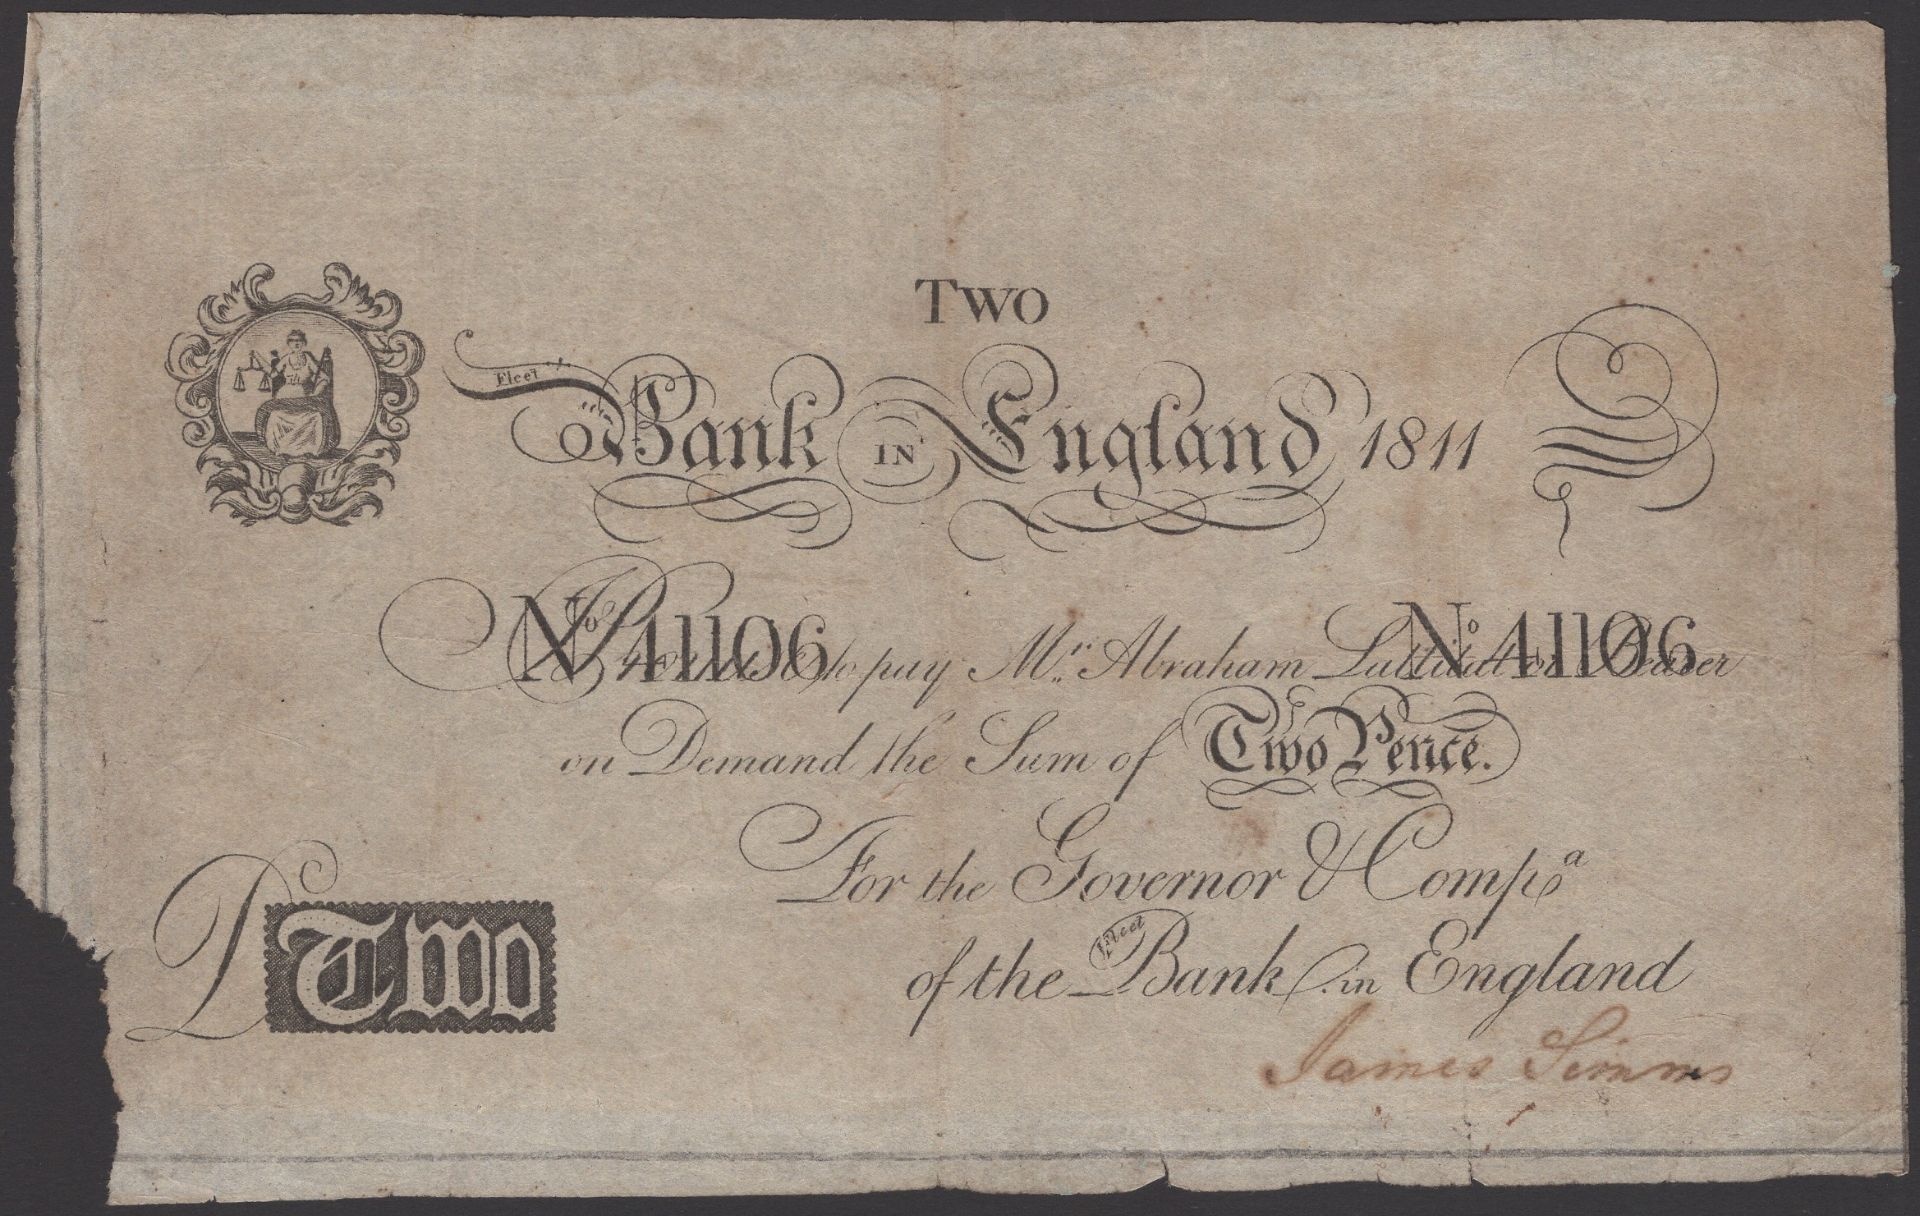 TWO
Fleet
Bank IN England 1811
No 41106 No 41106
I Promise to pay Mr. Abraham or Bearer
on Demand the Sum of Two Pence.
For the Governor & Compa
of the Fleet Bank in England
Two
James Simms